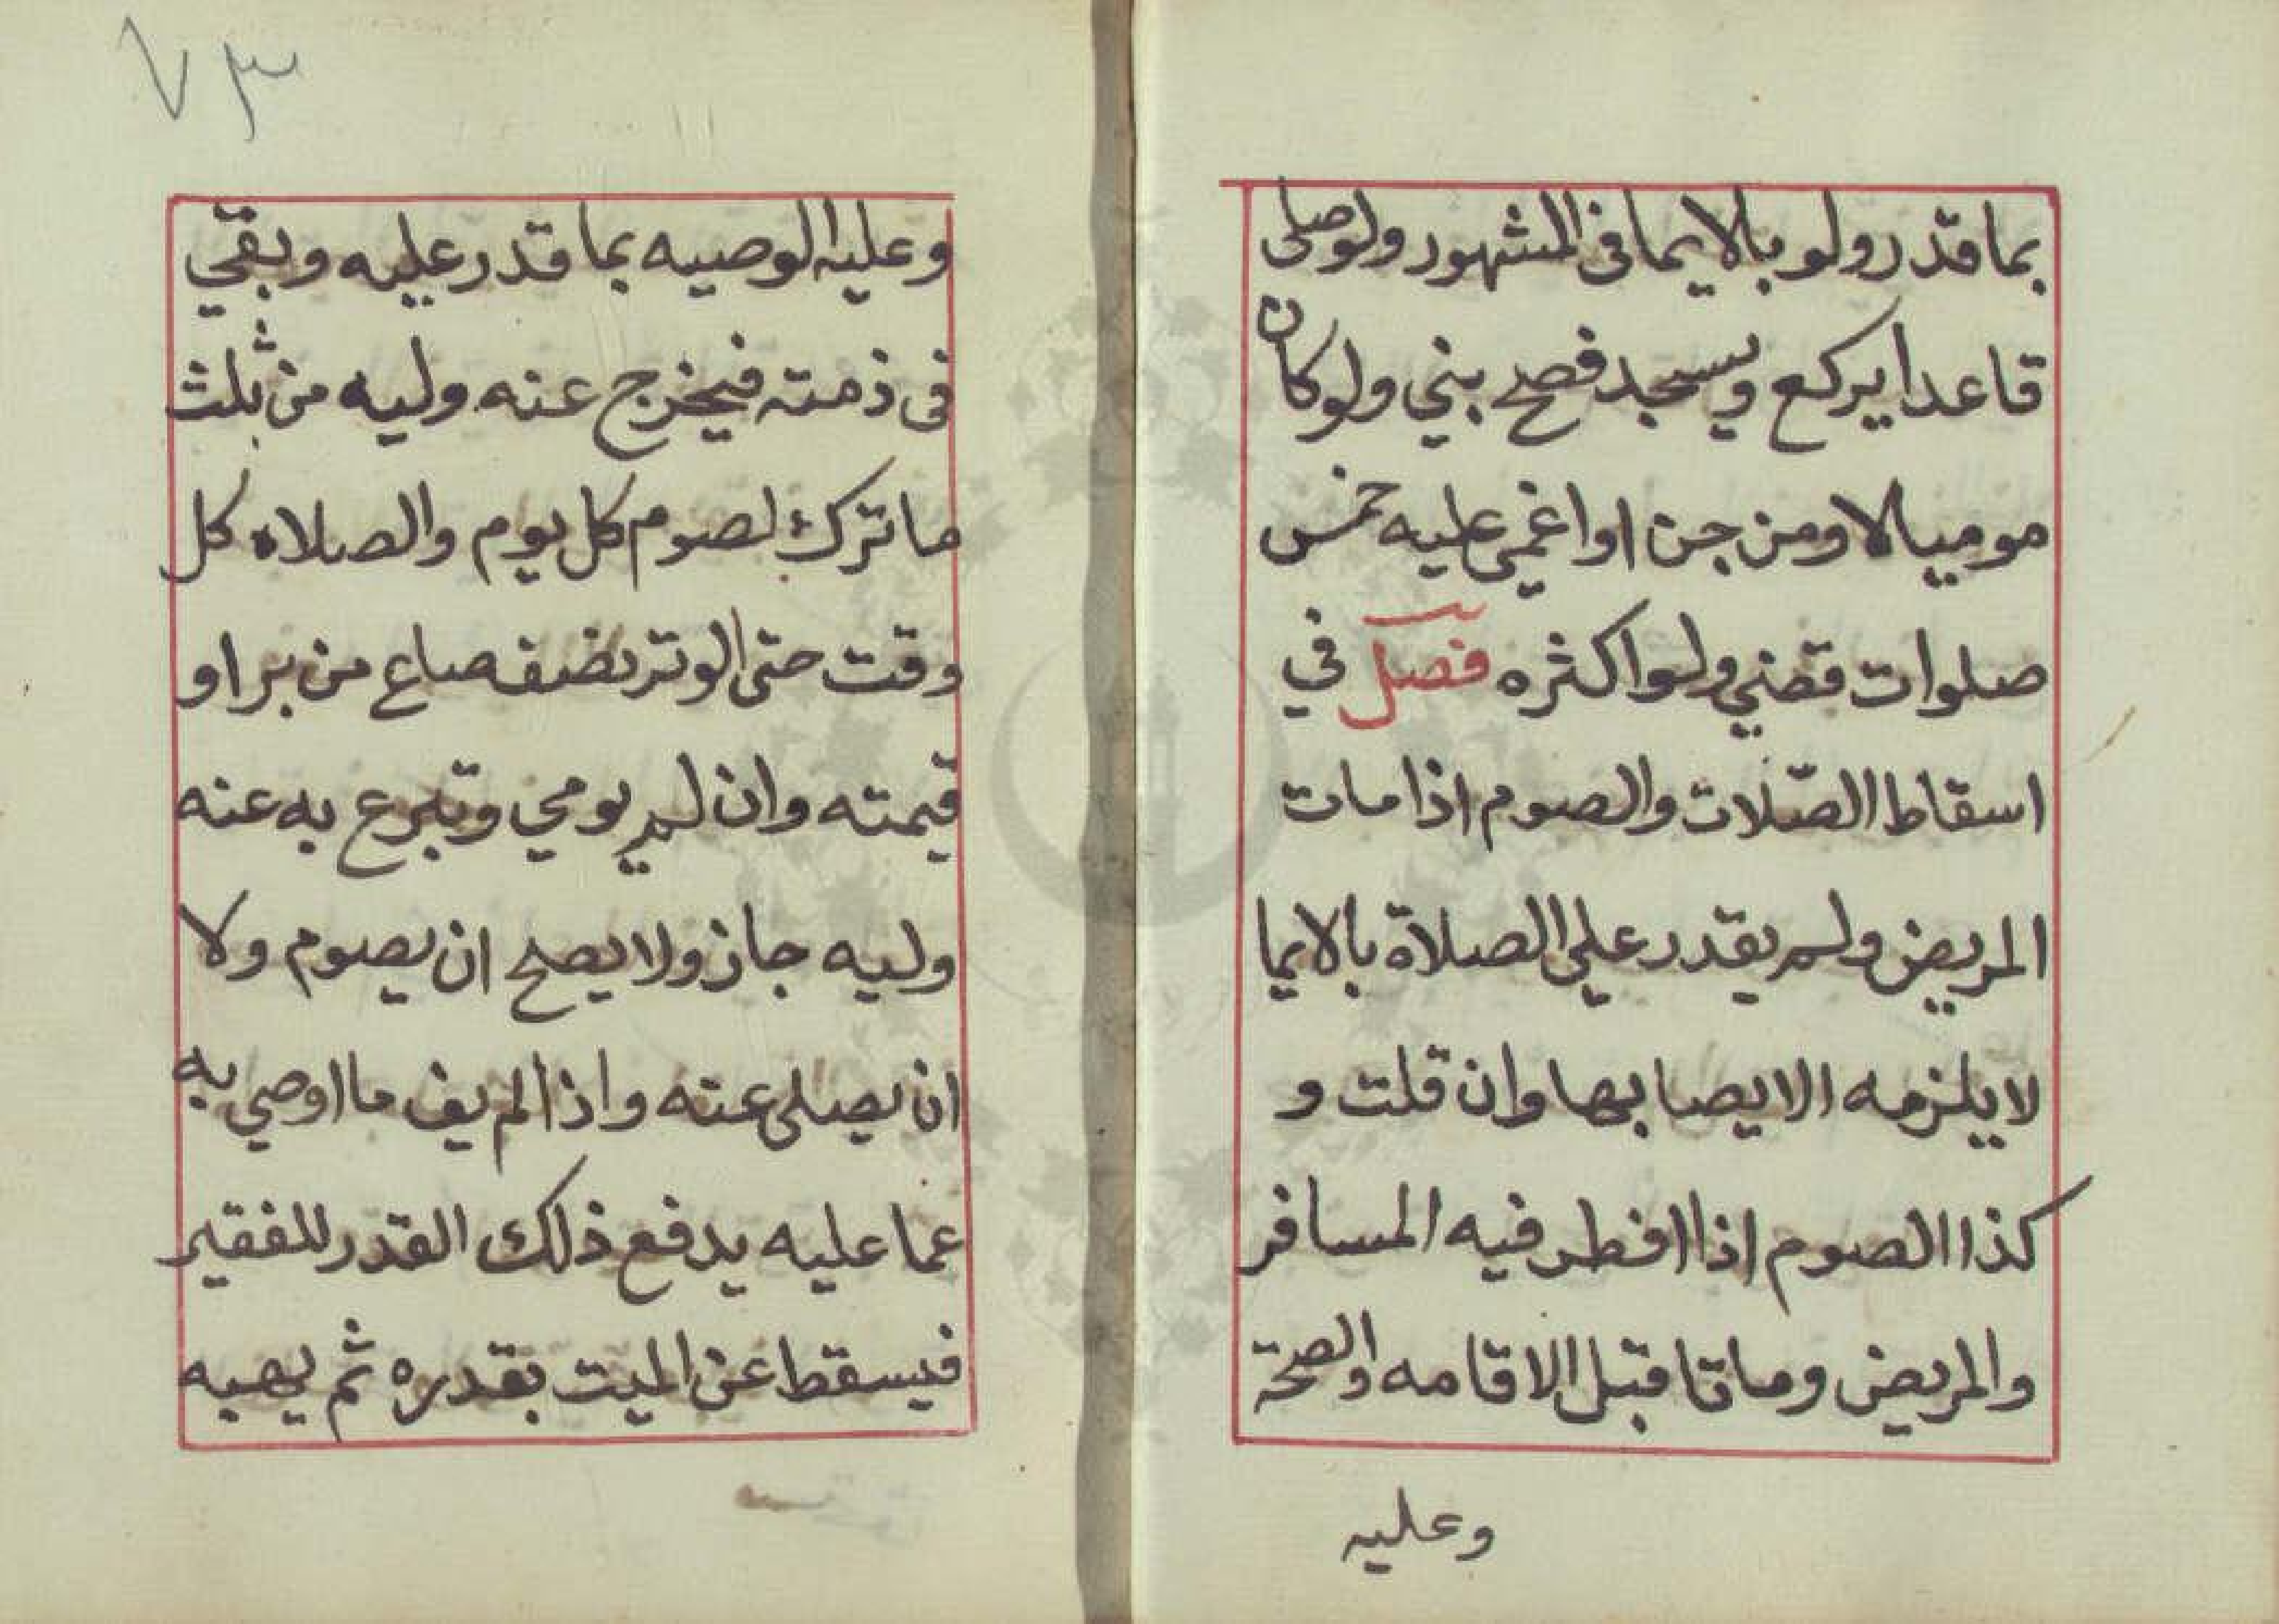 بما قدر ولو بالايما فى المشهور ولو صلى
قاعدا يركع ويسجد فصح بني ولو كان
موميا لا ومن جن او اغمي عليه خمس
صلوات قضي ولو اكثره فصل في
اسقاط الصّلات والصوم اذا مات
المريض ولم يقدر على الصلاة بالايما
لا يلزمه الايصا بها وان قلت و
كذا الصوم اذا افطر فيه المسافر
والمريض وماتا قبل الاقامه والصحة
وعليه
٧٣
وعليه الوصيه بما قدر عليه وبقي
فى ذمته فيخرج عنه وليه من ثلث
ما ترك لصوم كل يوم والصلاه كل
وقت حتى الوتر نصف صاع من بر او
قيمته وان لم يوصي وتبرع به عنه
وليه جاز ولا يصح ان يصوم ولا
ان يصلى عنه واذا لم يف ما اوصي به
عما عليه يدفع ذلك القدر للفقير
فيسقط عن الميت بقدره ثم يهبه